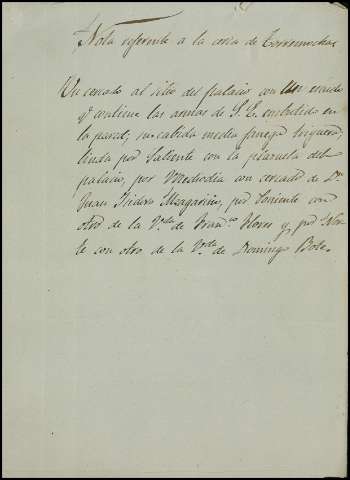 Nota referente a la casa de Torremocha
Un cercado al sitio del palacio con un escudo
qe contiene las armas de S. E. embutido en
la pared, su cabida media fanega
linda por Saliente con la plazuela del
palacio, por Mediodia con cercado de Dn
Juan Isidoro por Poniente con
otro de la Vda de Franco Flores y por Nor-
te con otro de la Vda de Domingo Bote.